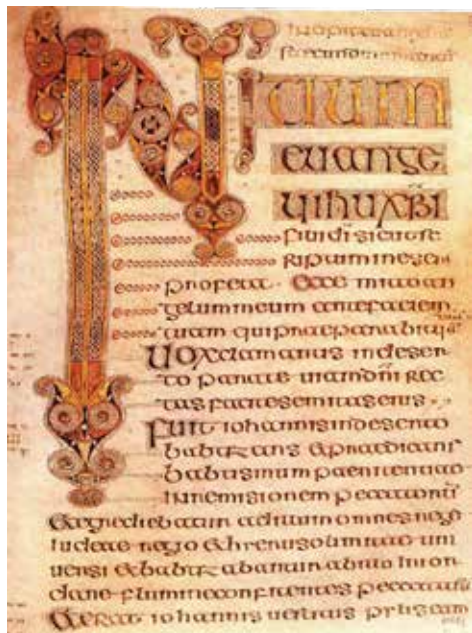 INITIUM
euange
lii ihu xpi
fili di sicut sc
riptum in esai
profeta · Ecce mitto an
gelum meum ante faciem
tuam qui praeparabit
Uox clamantis in deser
to parate uiam dni rec
tas facite semitas eius
Fuit iohannis in deserto
babtizans & praedicans
babtismum paenitentiae
in remisionem
& egrediebatur ad illum omnes
iudeae regio & uni
uersi & babtizabantur ab illo in ior
dane flumine confitentes peccata
& erat iohannis uestitus pilis cam